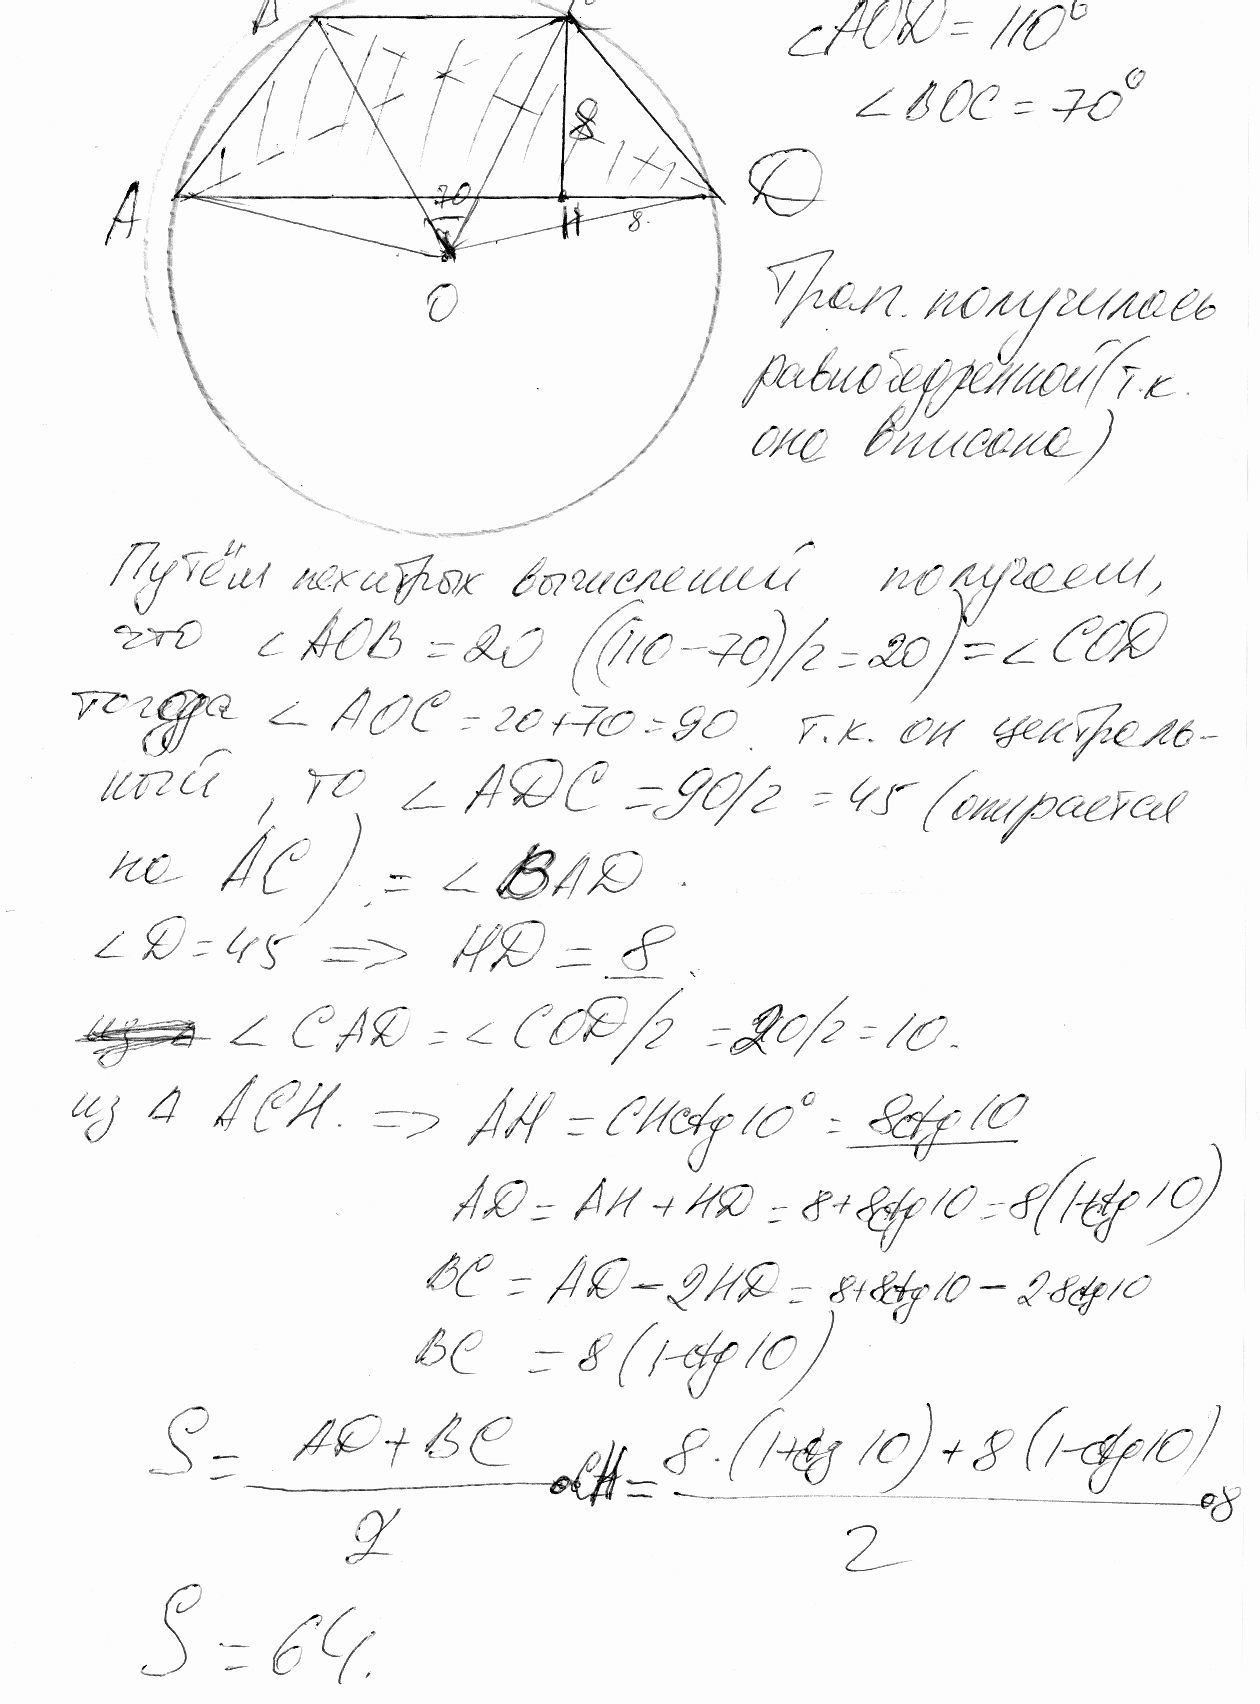 B C
∠AOD = 110°
∠BOC = 70°
8
A 70 H 8. D
O
Трап. получилась
равнобедренной (т.к.
она вписана)
Путём нехитрых вычислений получаем,
что ∠AOB = 20 ((110-70)/2 = 20) = ∠COD
тогда ∠AOC = 20+70 = 90. т.к. он централь-
ный, то ∠ADC = 90/2 = 45 (опирается
на AC) = ∠BAD.
∠D = 45 => HD = 8.
∠CAD = ∠COD/2 = 20/2 = 10.
из Δ ACH. => AH = CHctg10° = 8ctg10
AD = AH + HD = 8+8ctg10 = 8(1+ctg10)
BC = AD - 2HD = 8+8ctg10 - 2·8ctg10
BC = 8(1-ctg10)
S = (AD + BC)/2 · CH = (8·(1+ctg10) + 8(1-ctg10))/2 · 8
S = 64.